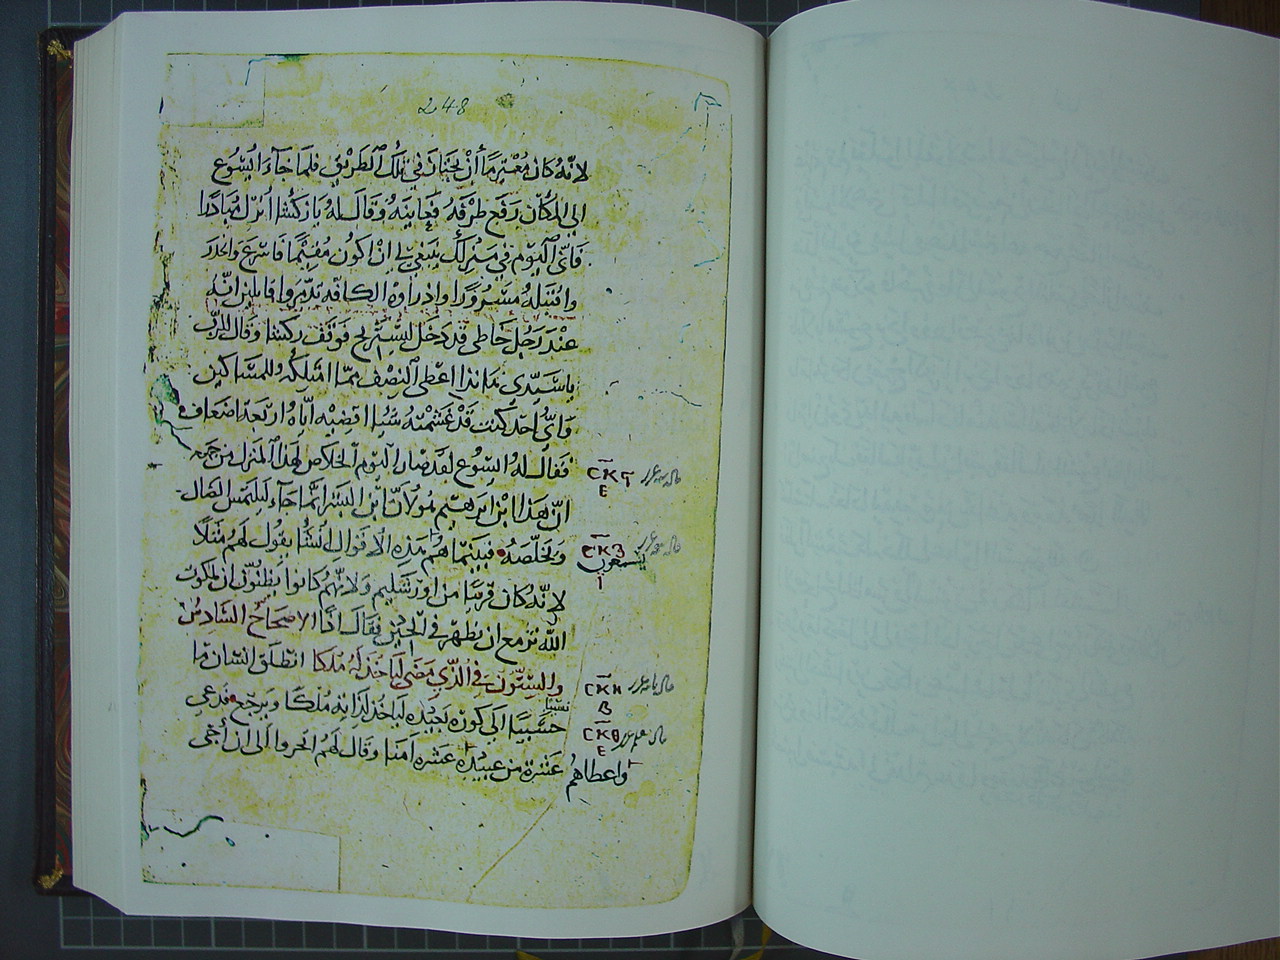 248
لانّه كان مُعْتزمًا أنْ يجتاز في تلك الطريق فلما جآء اليسُوع
الى المكان رَفع طرْفه فعاينه وقال له يا زكّشا انزل مُبادرًا
فانّي اليوْم في منزلك ينبغي لي انْ اكون مُقيْمًا فاسْرع وانحدر
واقتبله مسْرورًا واذ رأوه الكافه تذمّروا قايلين انّه
عنْد رَجُل خاطي قد دخل ليسْتريح فوقف زكشا وقال للربّ
يا سيّدي ماندا اعْطى النصْف ممّا امتلكه للمسَاكين
وَايُّ احَد كنت قدْ غشمْته شيًا اقضيْه ايّاه اربعة اضعاف
فقال له اليسُوع لقد صَار اليوْم الخلاص لهذا المنزل من جهة
انّ هذا ابْن ابرهيْم هُو لانّ ابن البشر انّما جآء ليلتمس الضال
ويخلّصه فبيْنما همْ هذه الاقوال انشا يقول لهمْ مثلًا
يسْمعون
لانّه كان قريبًا من اورشليم ولانّهمْ كانوا يظنّون ان ملكوت
الله تزمع ان تظهر في الحين فقال اذًا الاصحاح السَّادسُ
والستّون في الذّي مضى ليَاخذ له مُلكا انطلق انسَان مَا
نسْيبا
حسْيبًا الى كورة بعيْدة ليَاخذ لذاته مُلكًا ويرجع فدعى
عشرة من عبيْده عشرة امنا وقال لهمُ اتجروا الى ان أجى
واعطاهُم